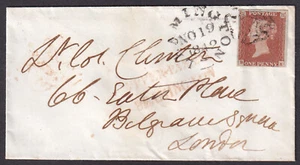 POSTAGE
ONE PENNY
MINGTON
NO 19
Lt. Col. Clinton
66 Eaton Place
Belgrave Square
London